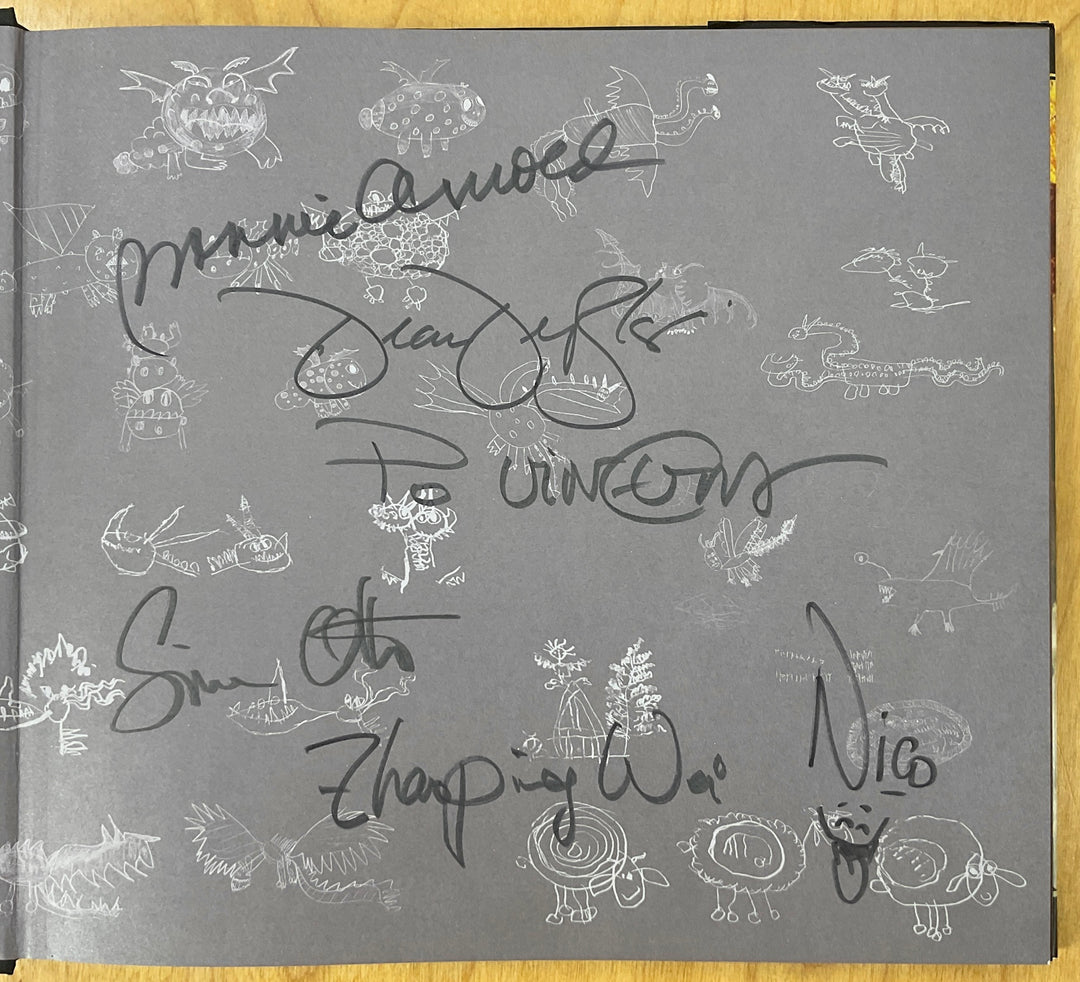 Bonnie Arnold
Dean DeBlois
Po VINCENT
Simon Otto
Nico
Zhaoping Wei